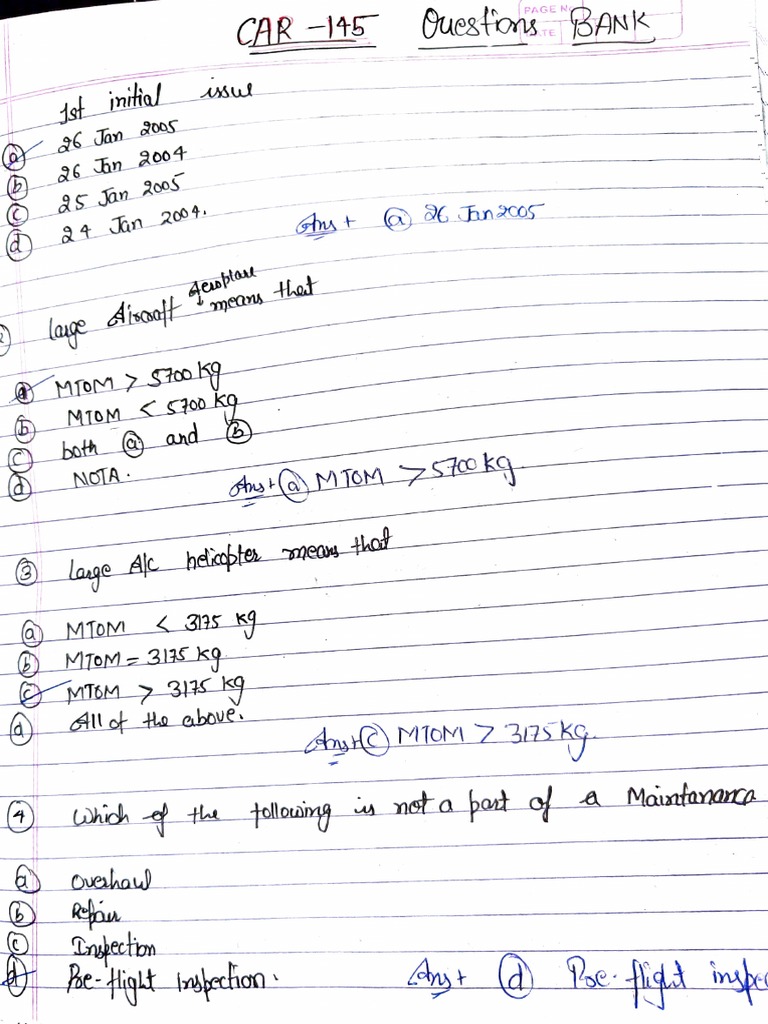 PAGE NO
CAR -145 Questions BANK
1st initial issue
ⓐ 26 Jan 2005
ⓑ 26 Jan 2004
ⓒ 25 Jan 2005
ⓓ 24 Jan 2004.
Ans ⓐ 26 Jan 2005
Aeroplane
large Aircraft means that
ⓐ MTOM > 5700 kg
ⓑ MTOM < 5700 kg
ⓒ both ⓐ and ⓑ
ⓓ NOTA.
Ans ⓐ MTOM > 5700 kg
③ large A/c helicopter means that
ⓐ MTOM < 3175 kg
ⓑ MTOM = 3175 kg
ⓒ MTOM > 3175 kg
ⓓ All of the above.
Ans ⓒ MTOM > 3175 kg.
④ which of the following is not a part of a Maintanance
ⓐ overhaul
ⓑ Repair
ⓒ Inspection
ⓓ Pre-flight inspection.
Ans ⓓ Pre-flight inspec